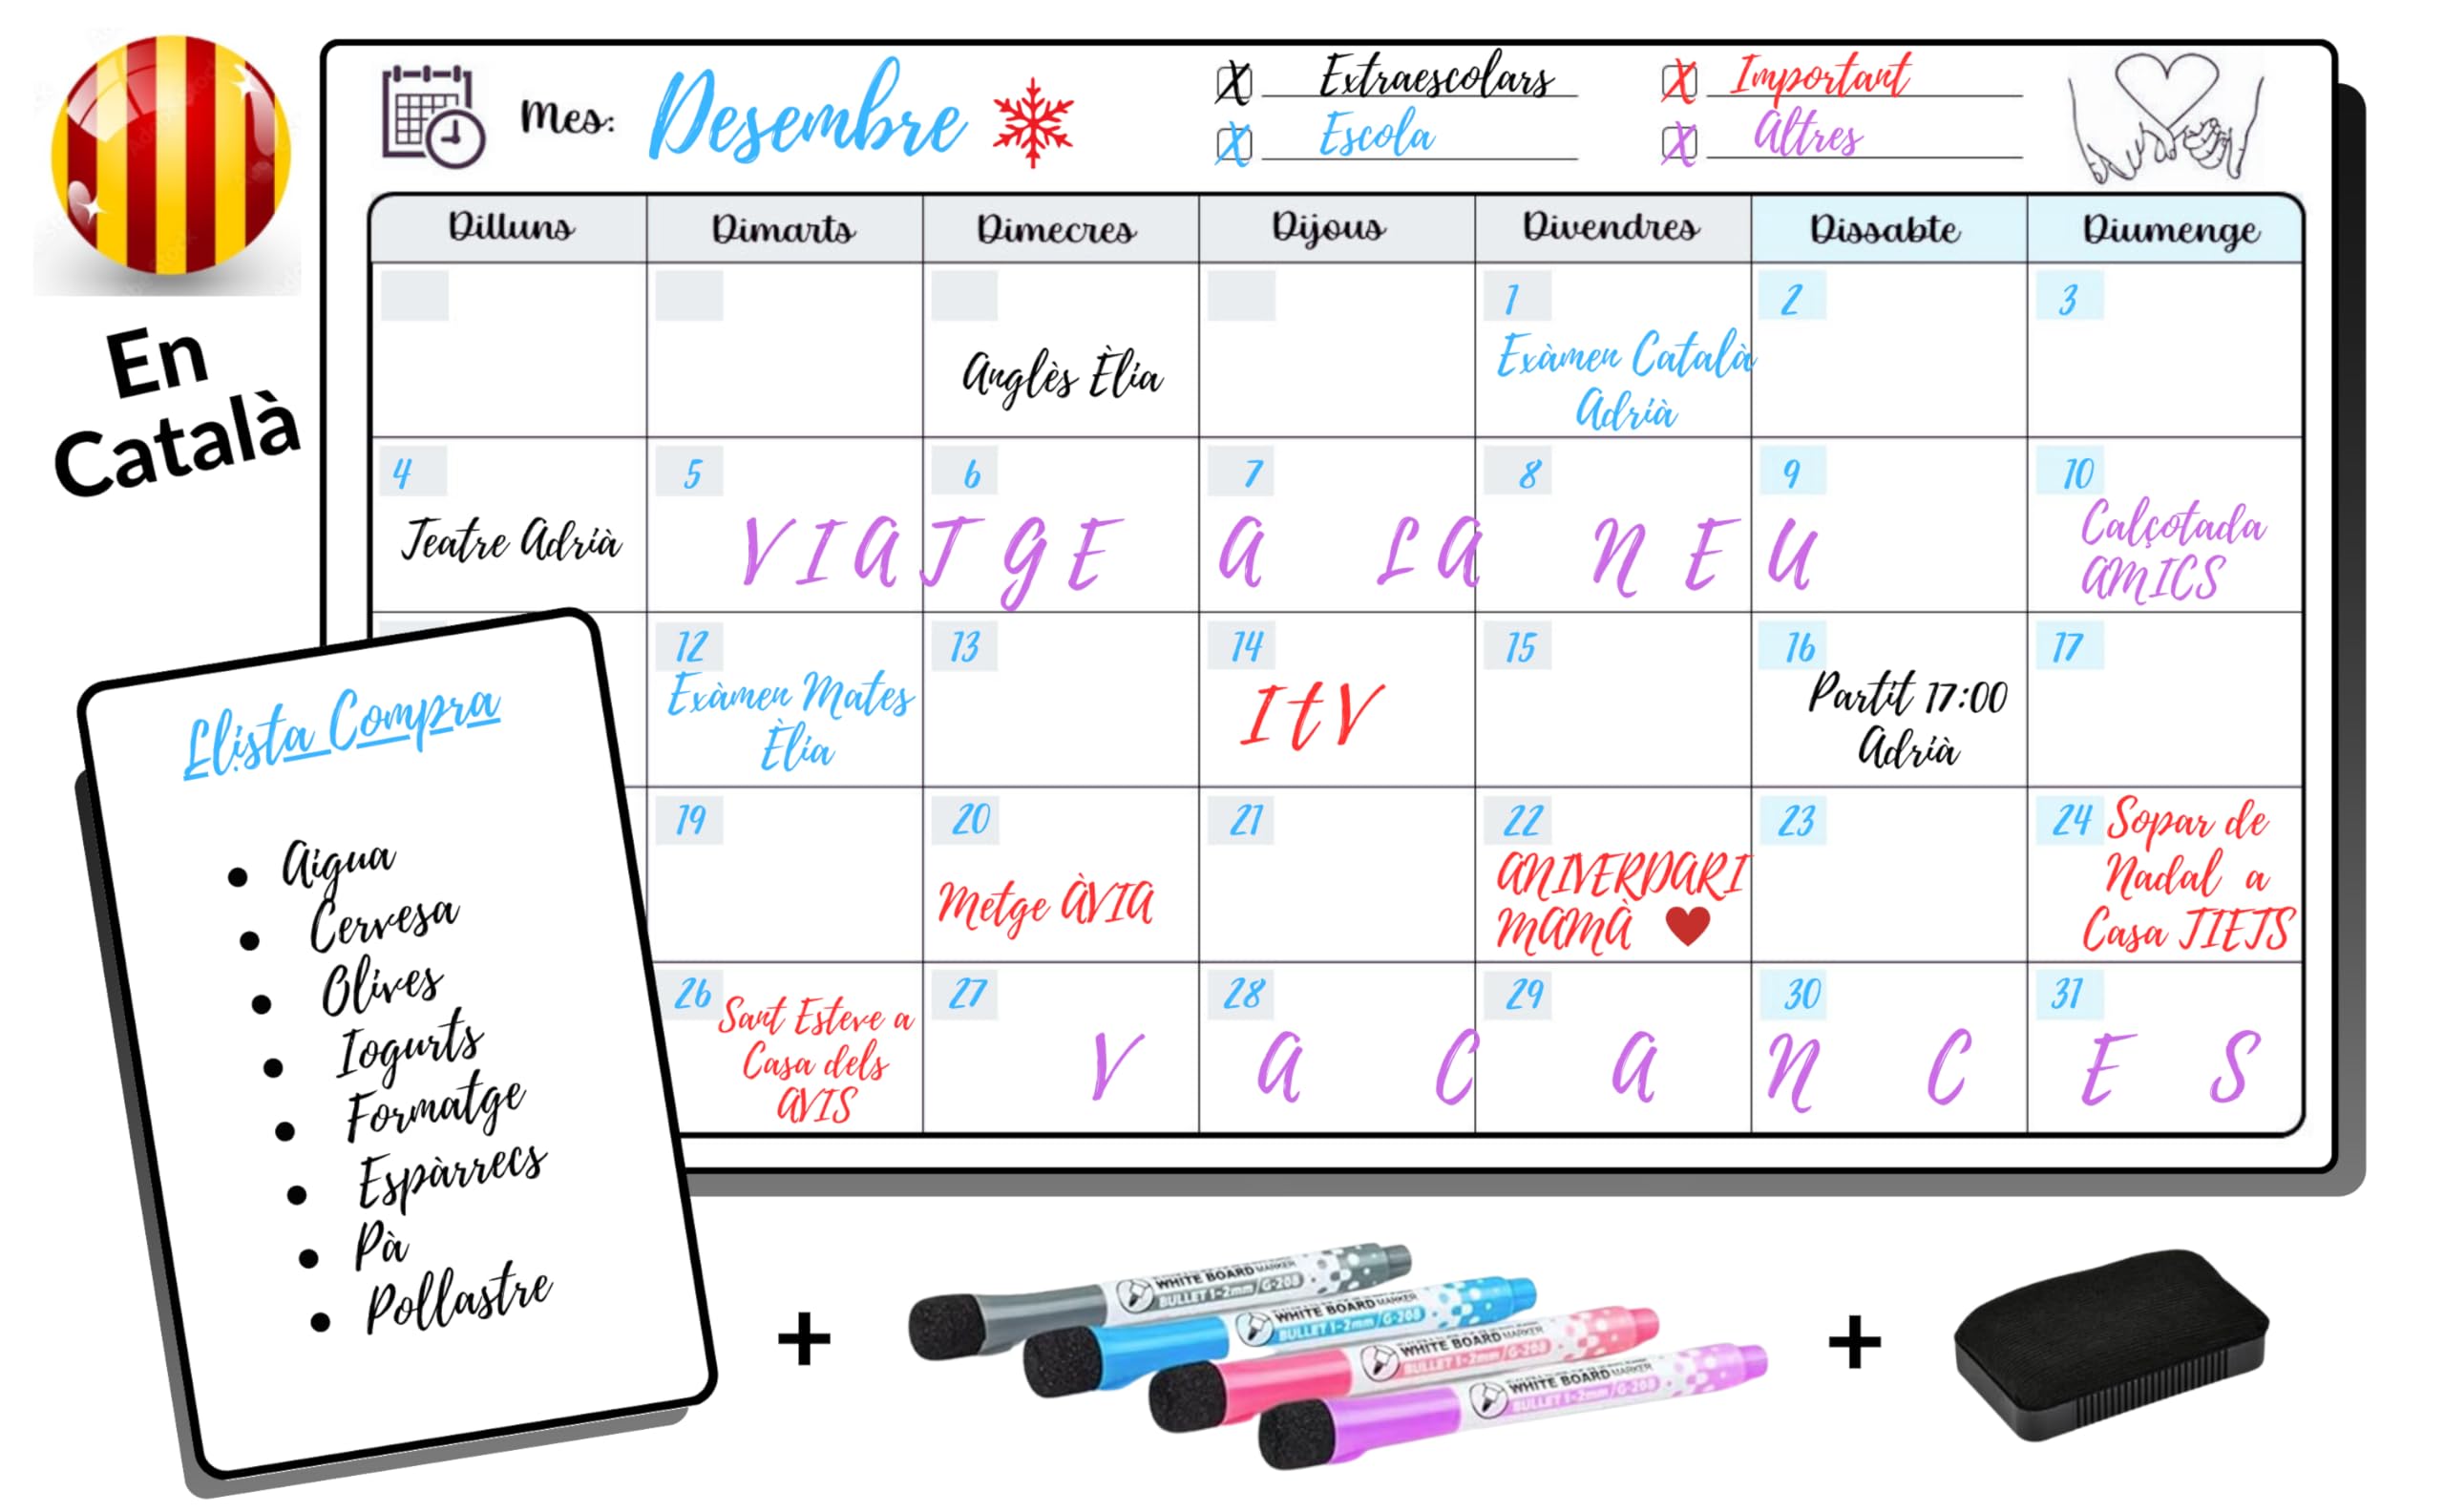 En
Català
Mes: Desembre
X Extraescolars
X Escola
X Important
X Altres
Dilluns Dimarts Dimecres Dijous Divendres Dissabte Diumenge
1 2 3
Anglès Èlia
Exàmen Català
Adrià
4 5 6 7 8 9 10
Teatre Adrià
VIATGE A LA NEU
Calçotada
AMICS
12 13 14 15 16 17
Exàmen Mates
Èlia
ItV
Partit 17:00
Adrià
19 20 21 22 23 24
Metge ÀVIA
ANIVERDARI
MAMÀ
Sopar de
Nadal a
Casa TIETS
26 27 28 29 30 31
Sant Esteve a
Casa dels
AVIS
VACANCES
Llista Compra
Aigua
Cervesa
Olives
Iogurts
Formatge
Espàrrecs
Pà
Pollastre
+
WHITE BOARD MARKER
BULLET 1-2mm/G-208
WHITE BOARD MARKER
BULLET 1-2mm/G-208
WHITE BOARD MARKER
BULLET 1-2mm/G-208
WHITE BOARD MARKER
BULLET 1-2mm/G-208
+